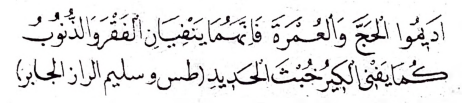 اَدِيمُوا الْحَجَّ وَالْعُمْرَةَ فَاِنَّهُمَا يَنْفِيَانِ الْفَقْرَ وَالذُّنُوبُ
كَمَا يَنْفِى الْكِيرُ خُبْثَ الْحَدِيدِ (طس وسليم الراز الجابر)